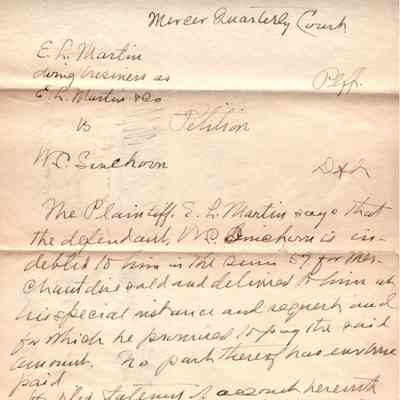 Mercer Quarterly Court
E. L. Martin
doing business as
E. L. Martin & Co
Plff.
vs Petition
W. C. Sinchorn
Dft
The Plaintiff E. L. Martin says that
the defendant W.C. Sinchorn is in-
debted to him in the sum 57 for mer-
chandise sold and delivered to him at
his special instance and request and
for which he promised to pay the said
amount. No part thereof has ever been
paid
statement of account herewith